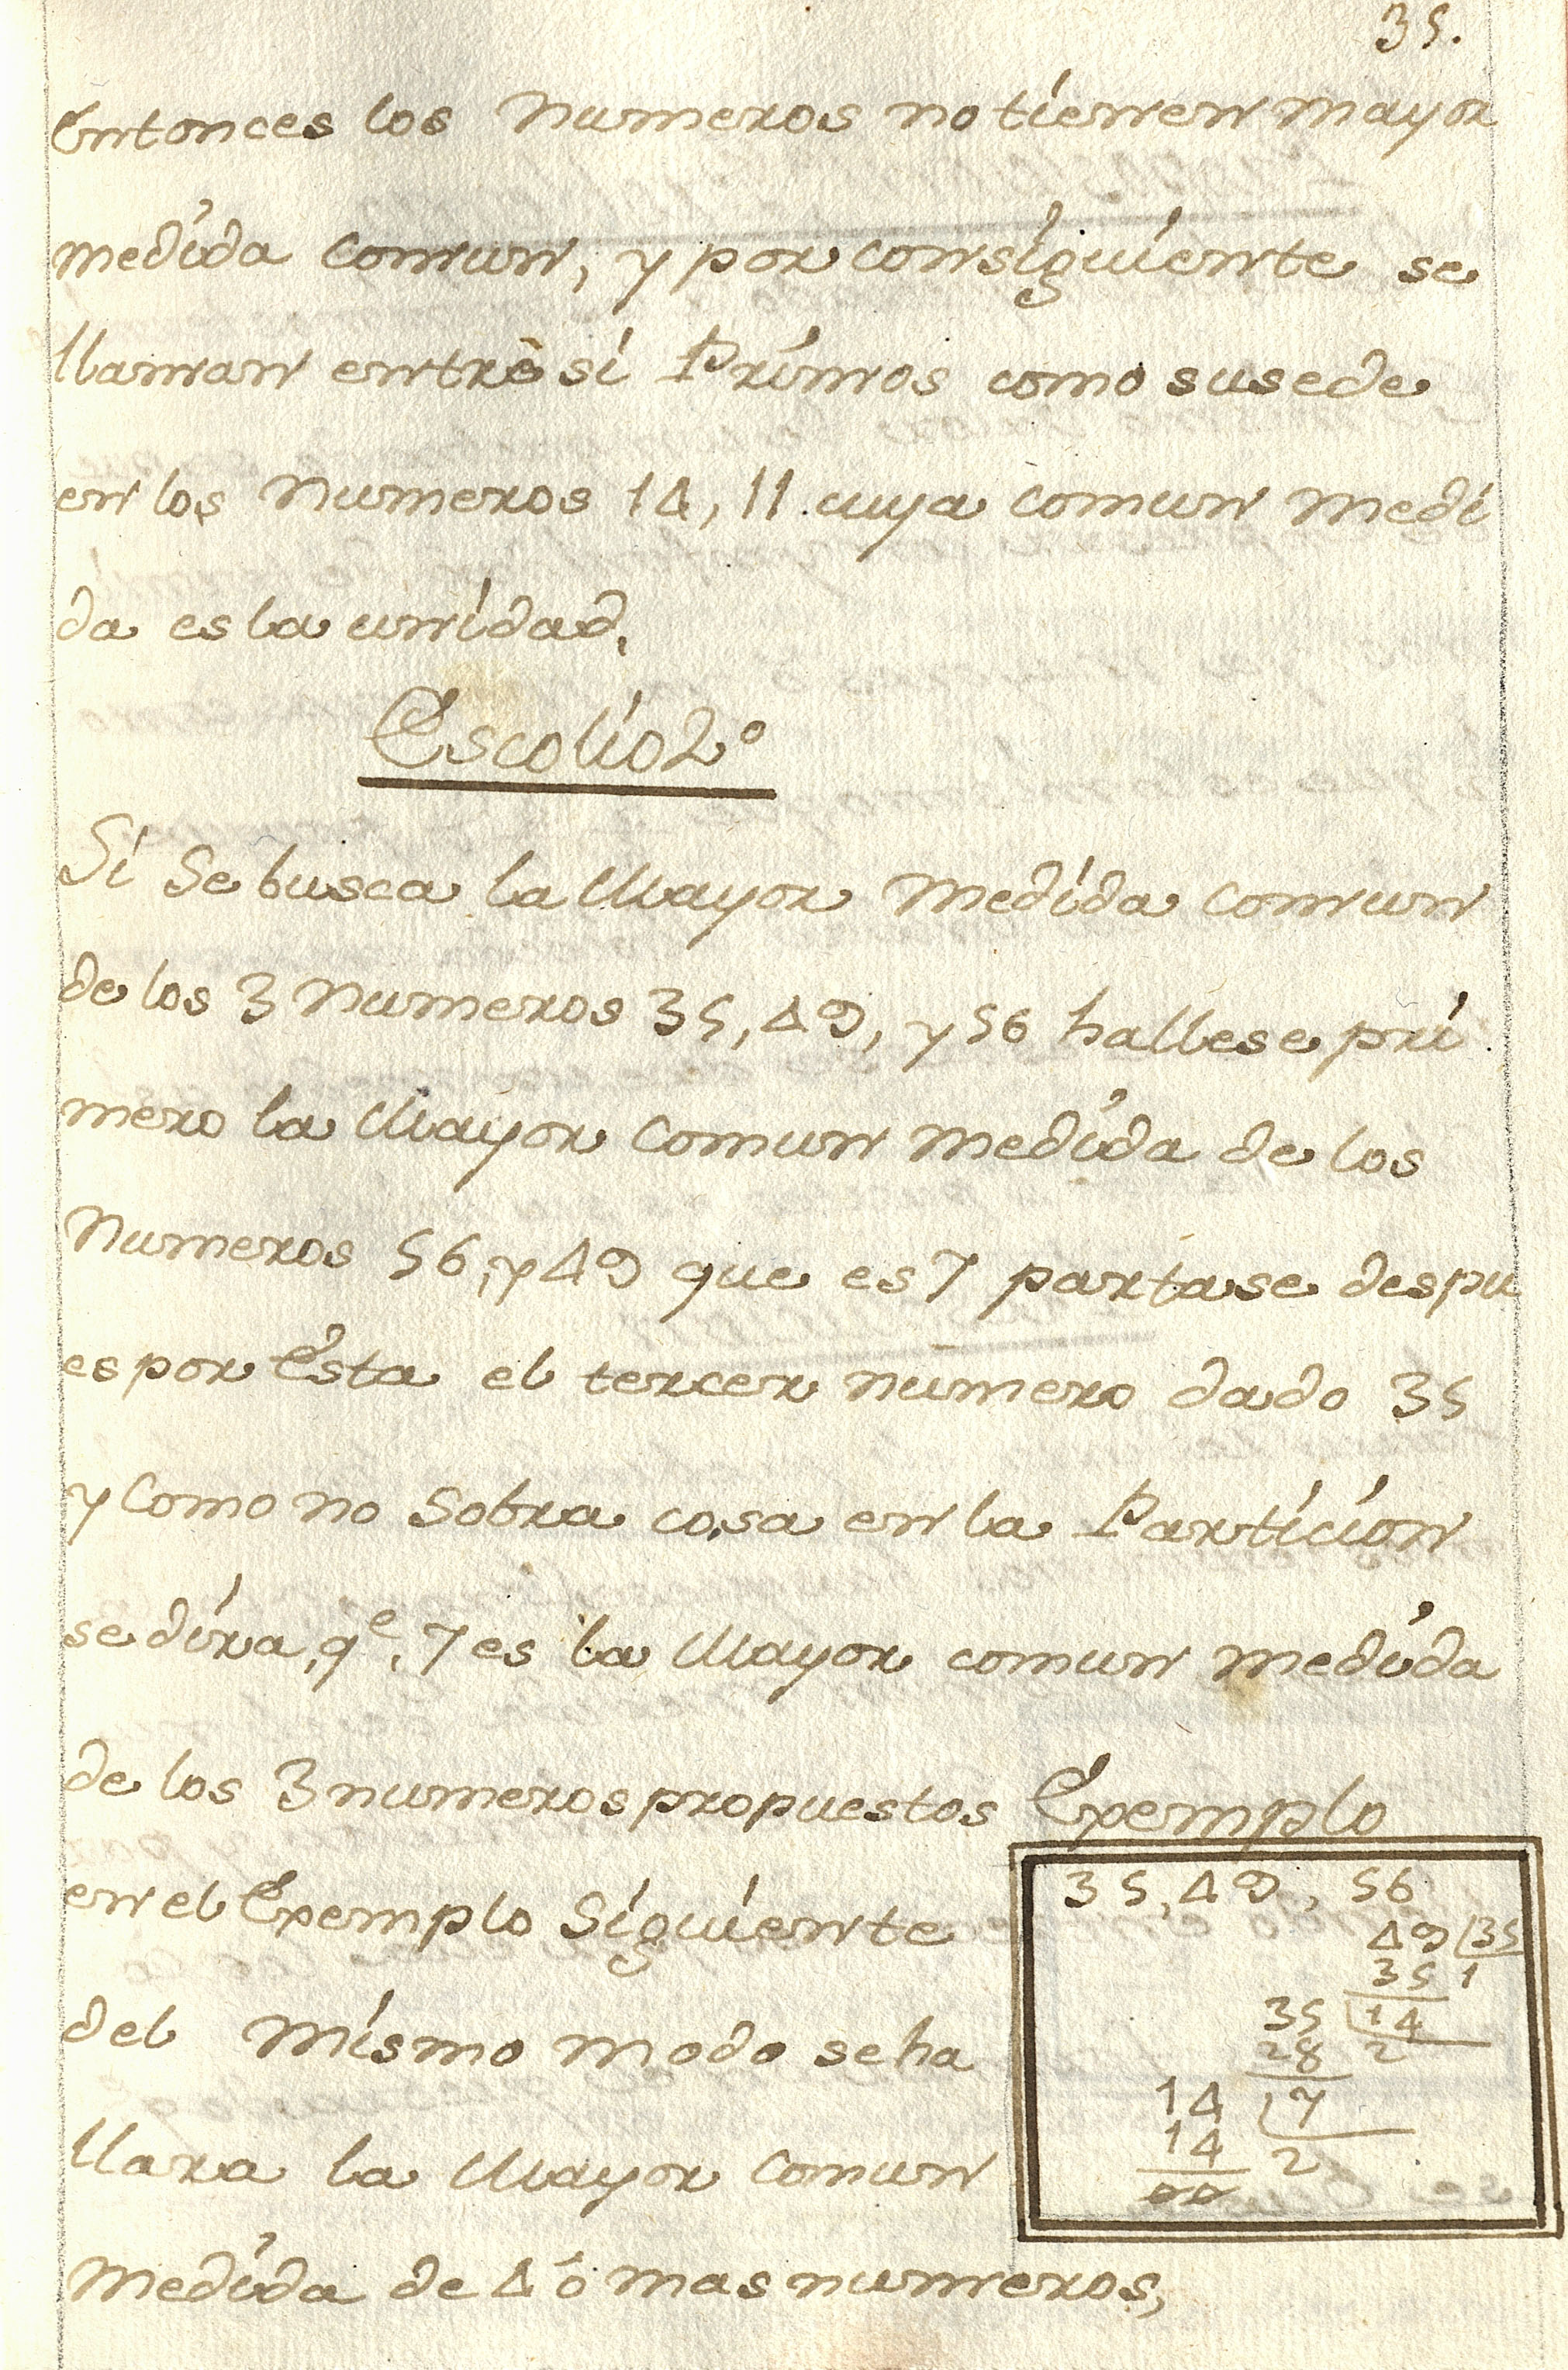 35.
Entonces los Numeros no tienen mayor
medida comun, y por consiguiente se
llaman entre si Primos como susede
en los Numeros 14, 11 cuya comun medi
da es la unidad,
Escolio 2º
Si Se busca la Mayor Medida comun
de los 3 Numeros 35, 49, y 56 hallese pri
mero la Mayor Comun Medida de los
Numeros 56, y 49 que es 7 partase despu
es por Esta el tercer numero dado 35
y Como no Sobra cosa en la Particion
se dira, qe, 7 es la Mayor comun medida
de los 3 numeros propuestos
en el Exemplo Siguiente
del Mismo modo se ha
llara la Mayor Comun
Medida de 4 ó mas numeros,
Exemplo
35, 49, 56
49 35
35 1
35 14
28 2
14 7
14 2
00